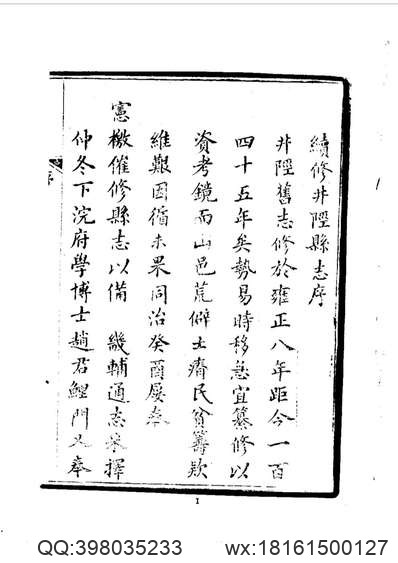 續修井陘縣志序
井陘舊志修於雍正八年距今一百
四十五年矣勢易時移急宜纂修以
資考鏡而山邑荒僻土瘠民貧籌款
維艱因循未果同治癸酉屢奉
憲檄催修縣志以備 畿輔通志採擇
仲冬下浣府學博士趙君鯉門又奉
序
1
QQ:398035233 wx:18161500127